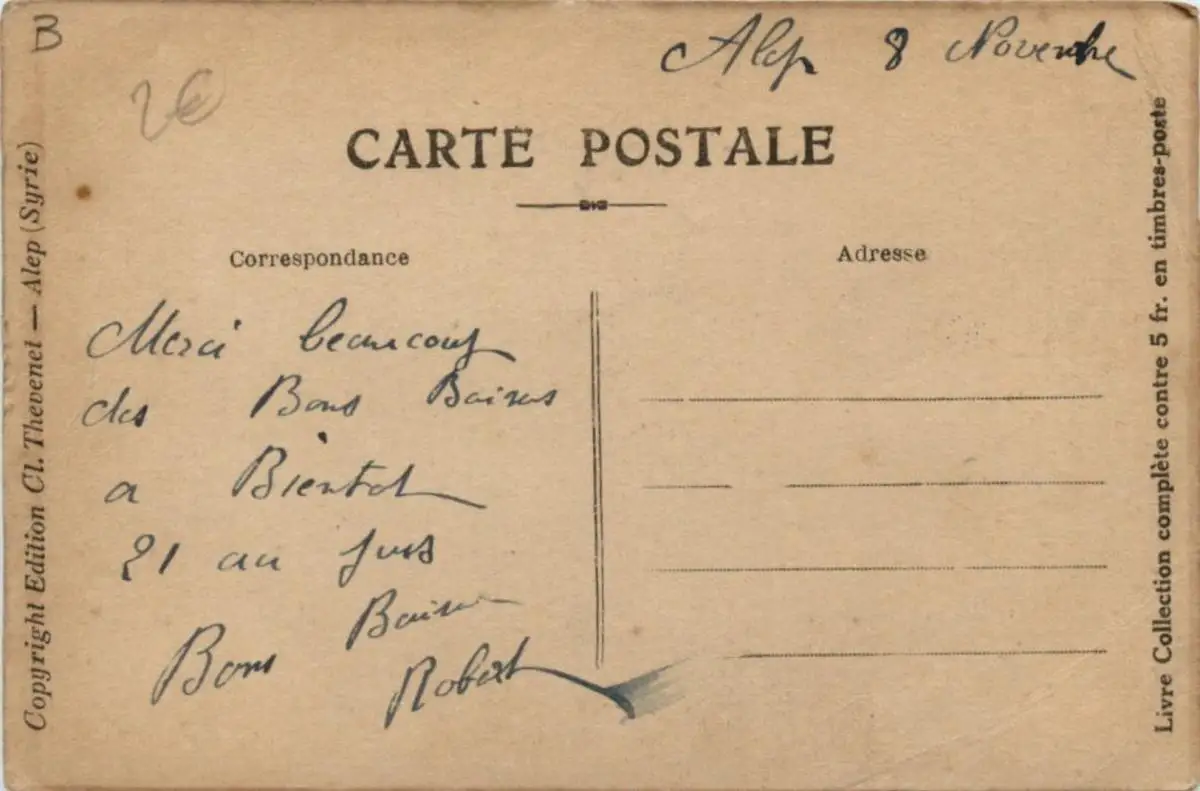 B
2€
Alep 8 Novembre
CARTE POSTALE
Correspondance
Adresse
Merci beaucoup
des Bons Baisers
a Bientot
21 au jus
Bons Baisers
Robert
Copyright Edition Cl. Thevenel — Alep (Syrie)
Livre Collection complète contre 5 fr. en timbres-poste